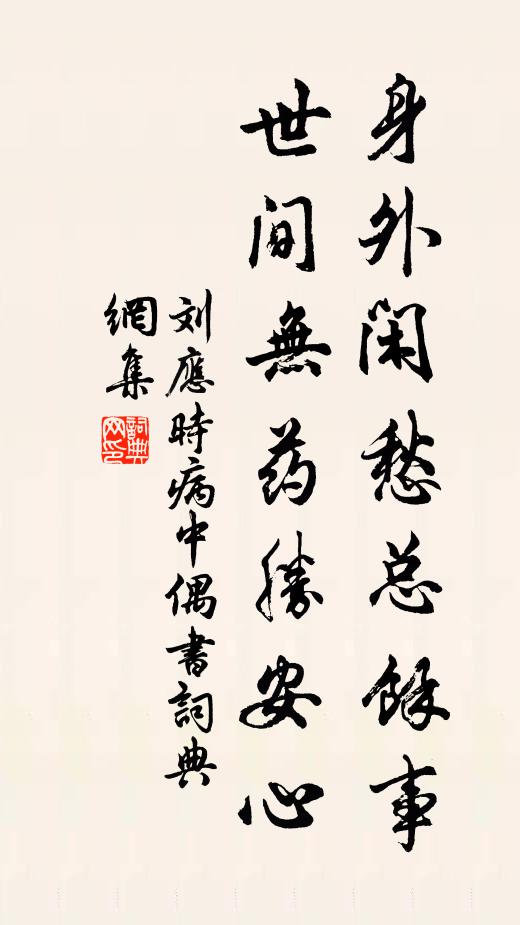 身外闲愁总餘事
世间無药勝安心
刘應時病中偶書詞典
網集
詞典网印